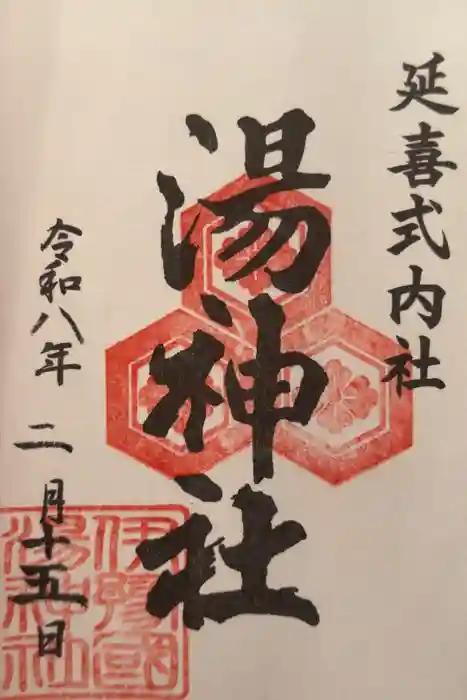 延喜式内社
湯神社
令和八年 二月十五日
伊豫國
湯神社